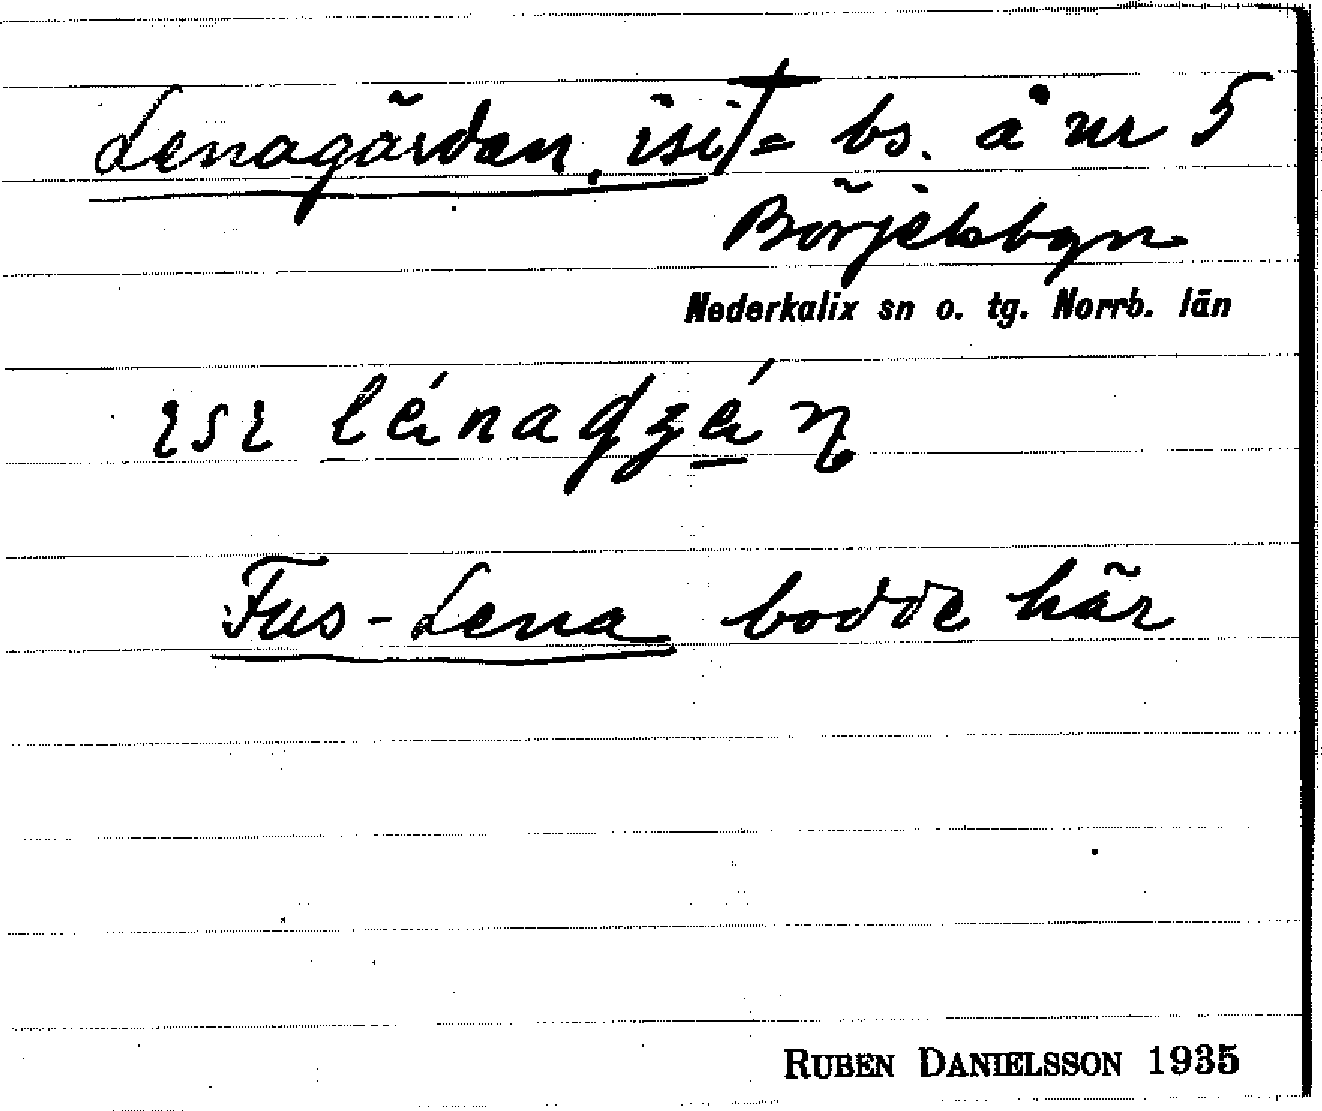 Lenagärdan, isi † = bs. å nr 5
Börjelsbyn
Nederkalix sn o. tg. Norrb. län
ɪsɪ
Fus-Lena bodde här
RUBEN DANIELSSON 1935